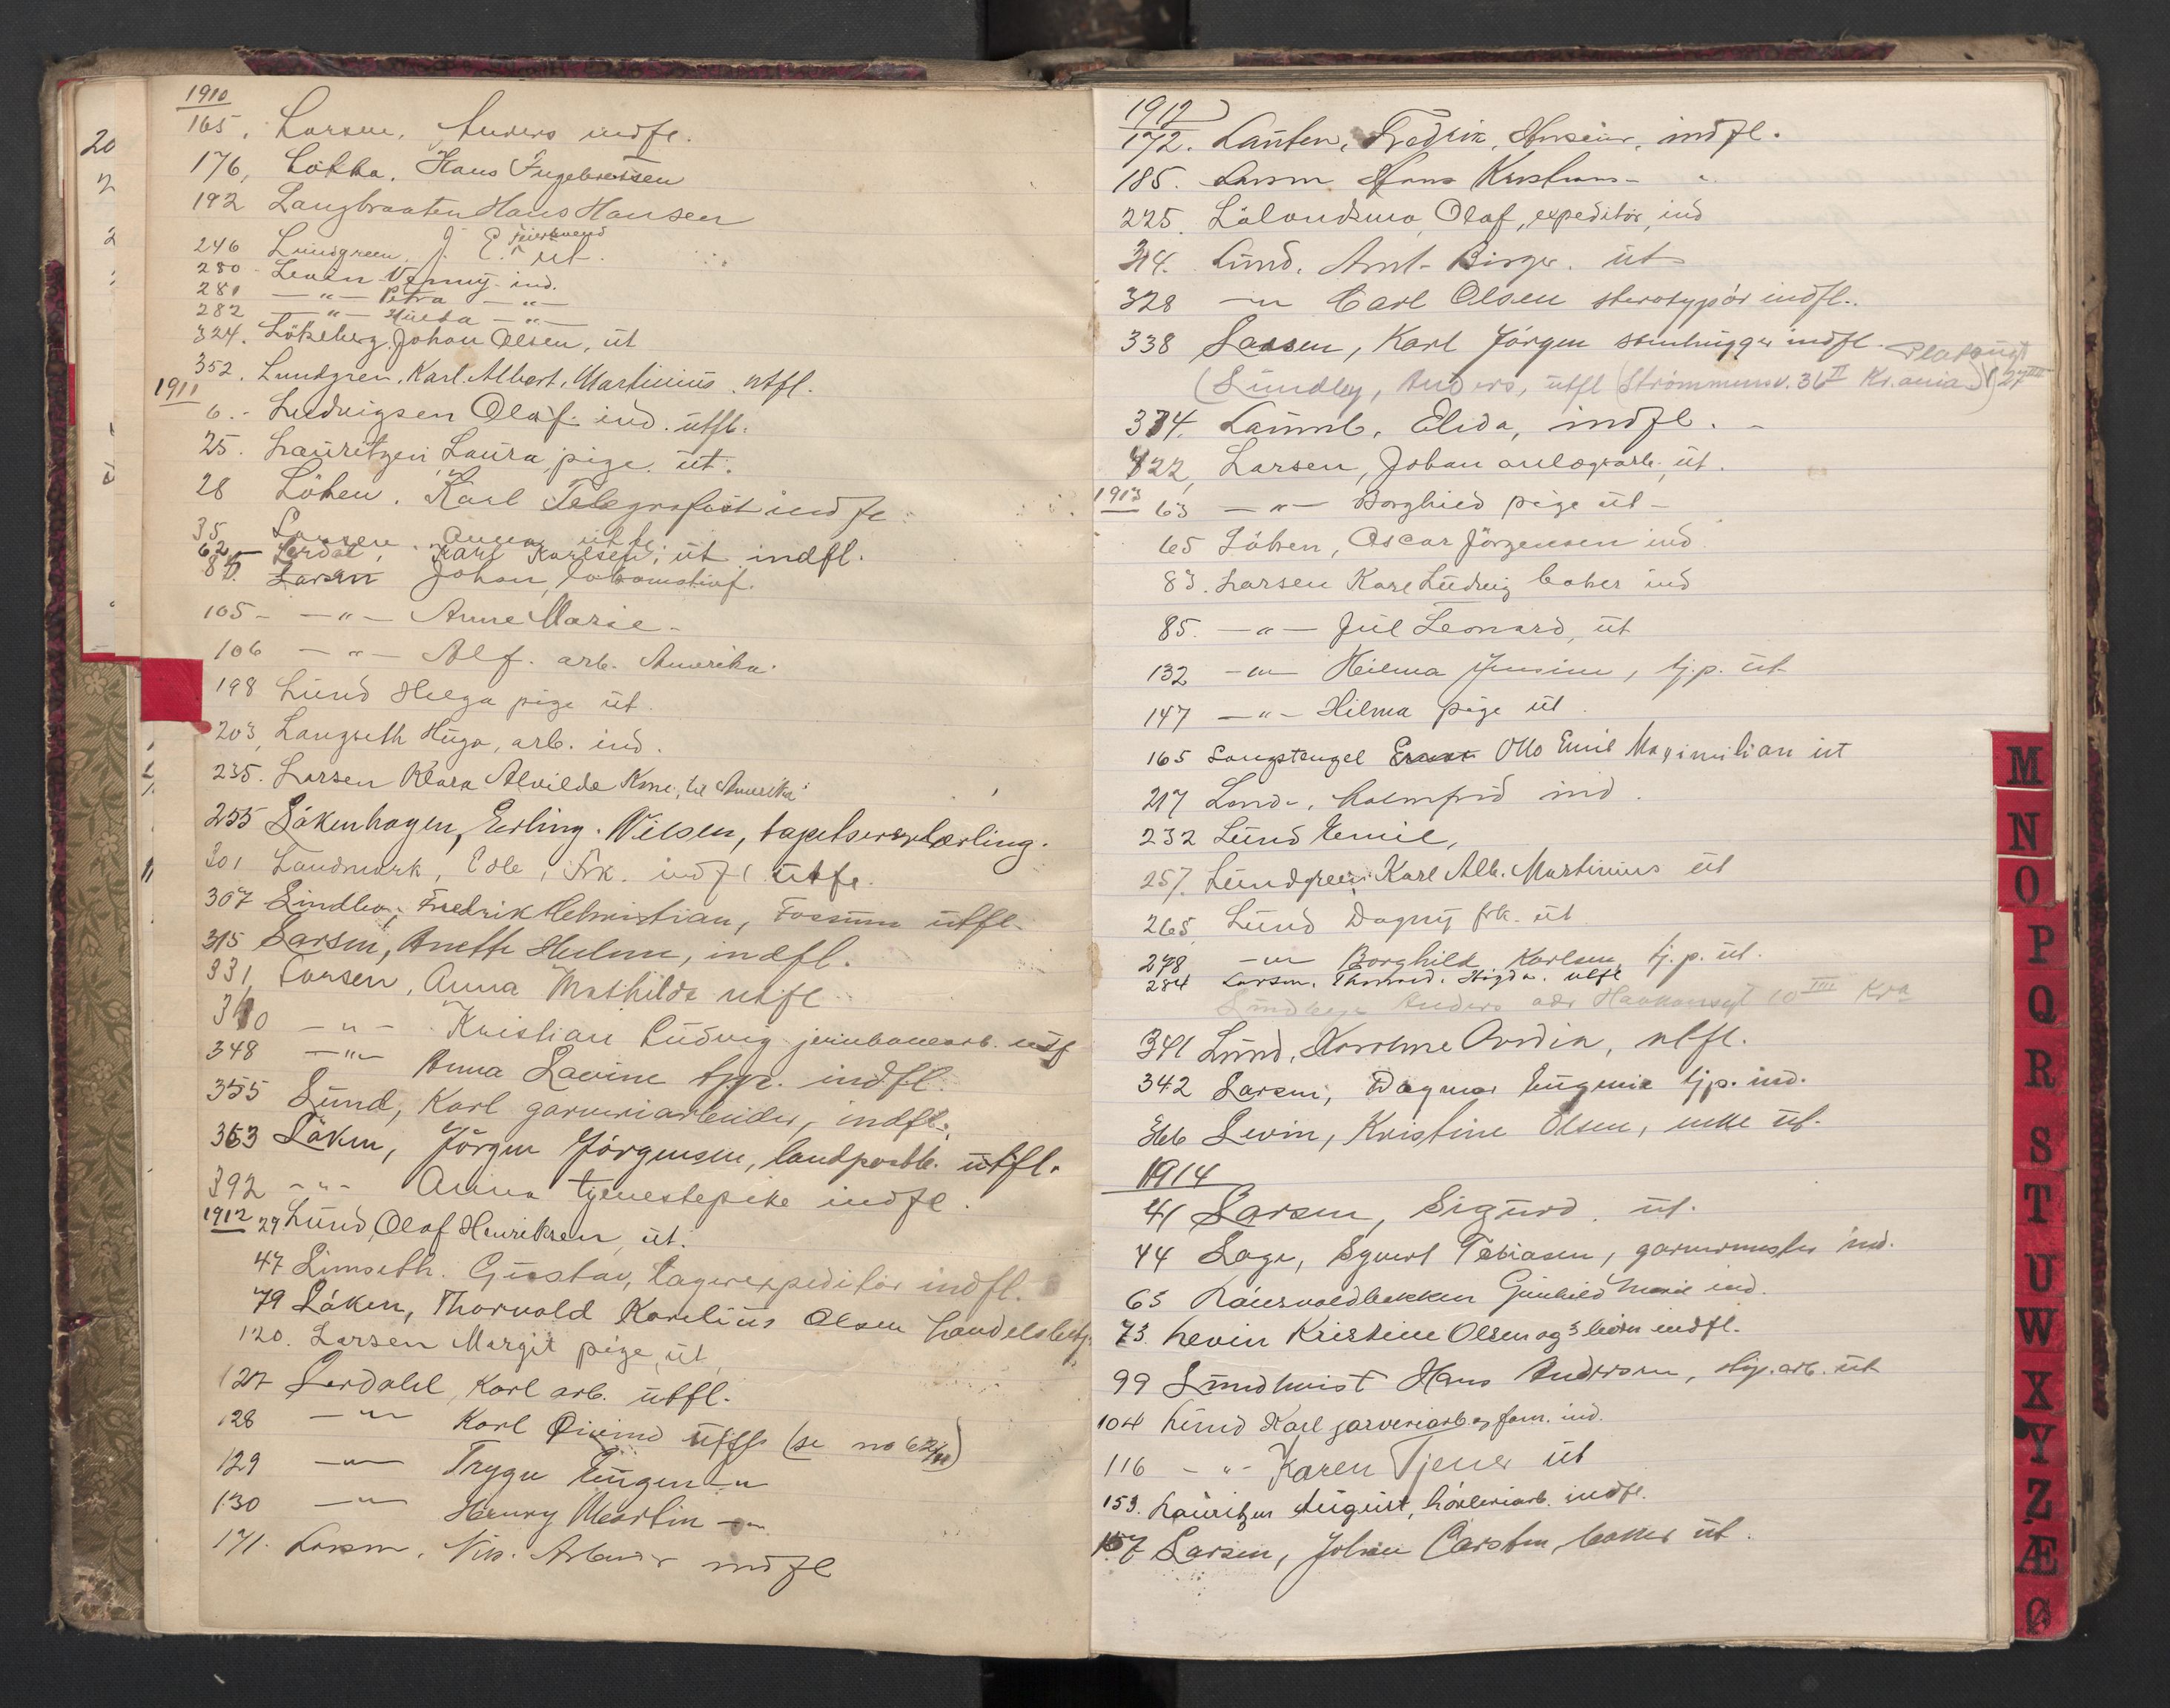 1910
165. Larsen, Anders indfl.
176, Løkka. Hans Engebretsen
192 Langbraaten Hans Hansen
246 Lundgreen, J. E. ut.
280 - Levin Vanny ind.
281 —"— Petra —"—
282 —"— Hulda —"—
324. Lökeberg, Johan Olsen, ut
352. Lundgren, Karl. Albert, Martinius. utfl.
1911
6. - Ludvigsen Olaf. ind. utfl.
25. Lauritzen Laura, pige. ut.
28 Löken. Karl Telegrafist indfl
35 Larsen. Anna utfl.
62 - Lerdal, Karl Karlsen, ut indfl.
86. Larsen Johan, lokomotivf.
105 - —"— Anne Marie -
106 —"— Alf. arb. Amerika.
198 Lund Helga pige ut.
203, Langseth Hugo, arb. ind.
235. Larsen Klara Alvilde Kone, til Amerika
255 Løkenhagen, Erling. Nilsen, tapetsererlærling.
301 Landmark, Edle, Frk. indfl utfl.
307 Lindbo, Fredrik Helmistian, Fossum utfl.
315 Larsen, Anette Helene, indfl.
331, Larsen, Anna Mathilde utfl
340 —"— Kristian Ludvig jernbanearb. utfl
348 —"— Anna Lavine tjp. indfl.
355 Lund, Karl garveriarbeider, indfl.
363 Løken, Jörgen Jörgensen, landpostb. utfl.
392 -"- Anna tjenestepike indfl.
1912 29 Lund, Olaf Henriksen, ut.
47 Limseth. Gustav, lagerexpeditör indfl.
79 Løken, Thorvald Karelius Olsen handelsbetj.
120. Larsen Margit pige, ut,
127 Lerdahl, Karl arb. utfl.
128 —"— Karl Øivind utfl (se no 62/11)
129 —"— Trygve Eugen —"
130 —"— Henry Martin —"—
171. Larsen, Nils. Arbeider indfl
1912
172. Fredrik, indfl.
185. Larsen Hans Kristians - "
225. Lölandsmo, Olaf, expeditör, ind
314. Lund. Arnt - Birger. ut
328 —"— Carl Olsen sterotypör indfl.
338 Larsen, Karl Jörgen stenhugger indfl.
(Lundby, Anders, utfl Strömmensv. 36 II Kr.ania)
374. Elida, indfl. -
422, Larsen, Johan anlægsarb. ut.
1913
63 —"— Borghild pige ut -
65 Löken, Oscar Jörgensen ind
83. Larsen Karl Ludvig baker ind
85. —"— Jul Leonard, ut
132 —"— Hilma Jensine, tj.p. ut
147 —"— Hilma pige ut.
165 Langstengel Ernst Otto Emil Maximilian ut
217 Lande, Holmfrid ind.
232 Lund Emil,
257. Lundgreen Karl Alb. Martinius ut
265, Lund Dagny frk. ut
278 —"— Borghild Karlsen, tj.p. ut.
284 Larsen, Thorvald. utfl
Lundby Anders adr Haakonsgt 10 III Kra
341 Lund, Karoline Ovidia, utfl.
342 Larsen, Dagmar Eugenie tjp. ind.
366 Levin, Kristine Olsen, enke ut.
1914
41 Larsen, Sigurd. ut.
44 Lage, Syvert Tobiasen, garvermester ind.
65 Gunhild Marie ind.
73. Levin Kristine Olsen og 3 börn indfl.
99 Lundkvist Hans Andersen, arb. ut
104 Lund Karl garveriarb og fam. ind.
116 -"- Karen Tjener ut
153. Lauritzen August, indfl.
157 Larsen, Johan Carsten, baker ut.
M
N
O
P
Q
R
S
T
U
W
X
Y
Z
Æ
Ø